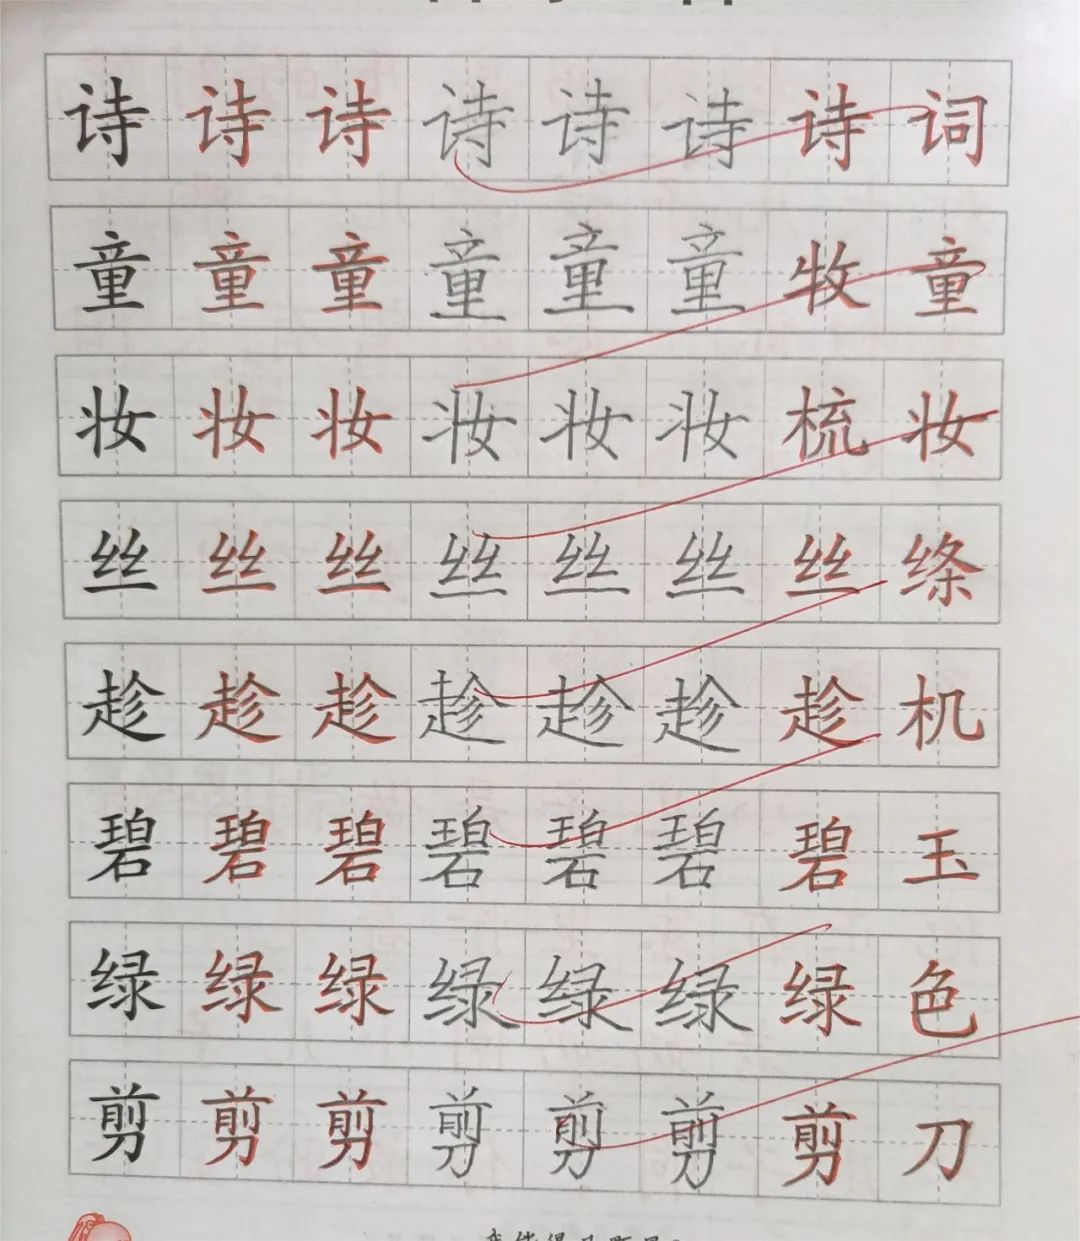 诗诗诗诗诗诗诗词
童童童童童童牧童
妆妆妆妆妆妆梳妆
丝丝丝丝丝丝丝绦
趁趁趁趁趁趁趁机
碧碧碧碧碧碧碧玉
绿绿绿绿绿绿绿色
剪剪剪剪剪剪剪刀